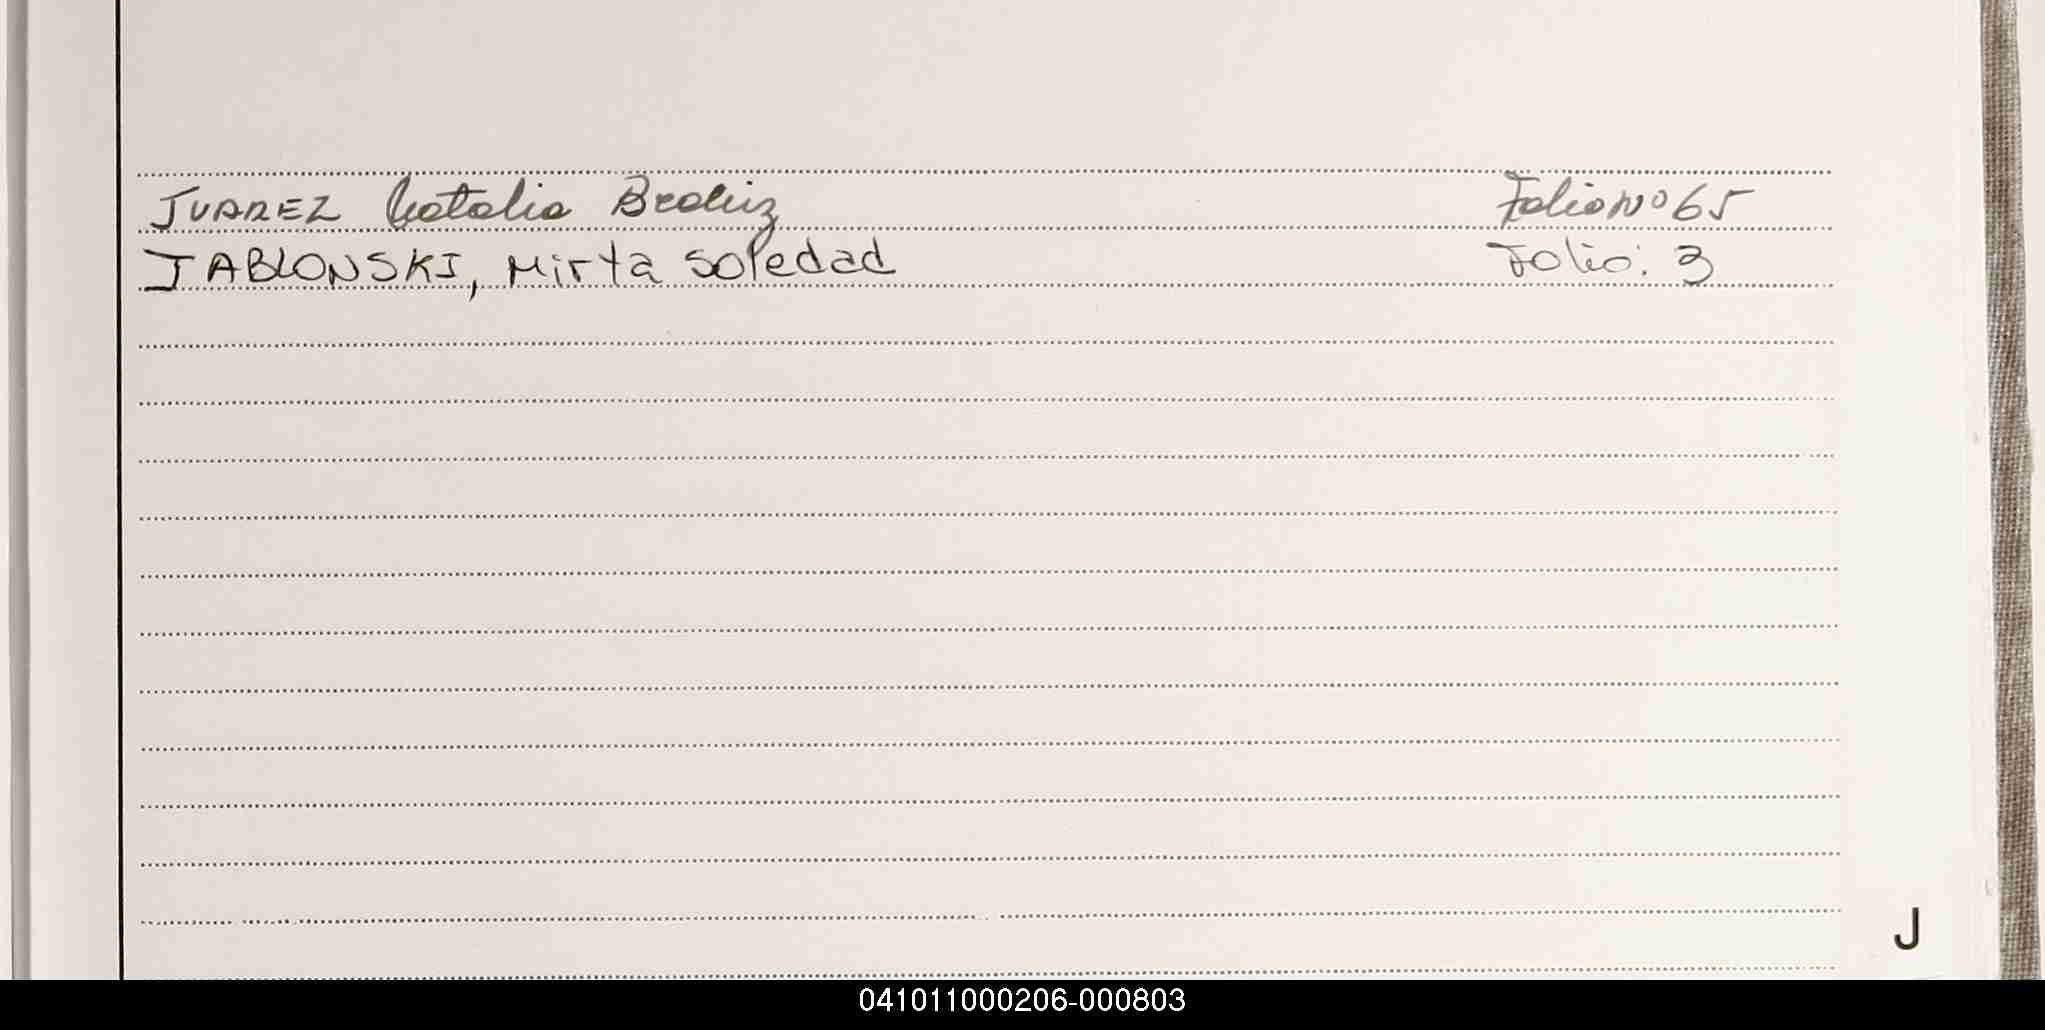 JUAREZ Natalia Beatriz Folio Nº 65
JABLONSKI, Mirta Soledad Folio: 3
J
041011000206-000803